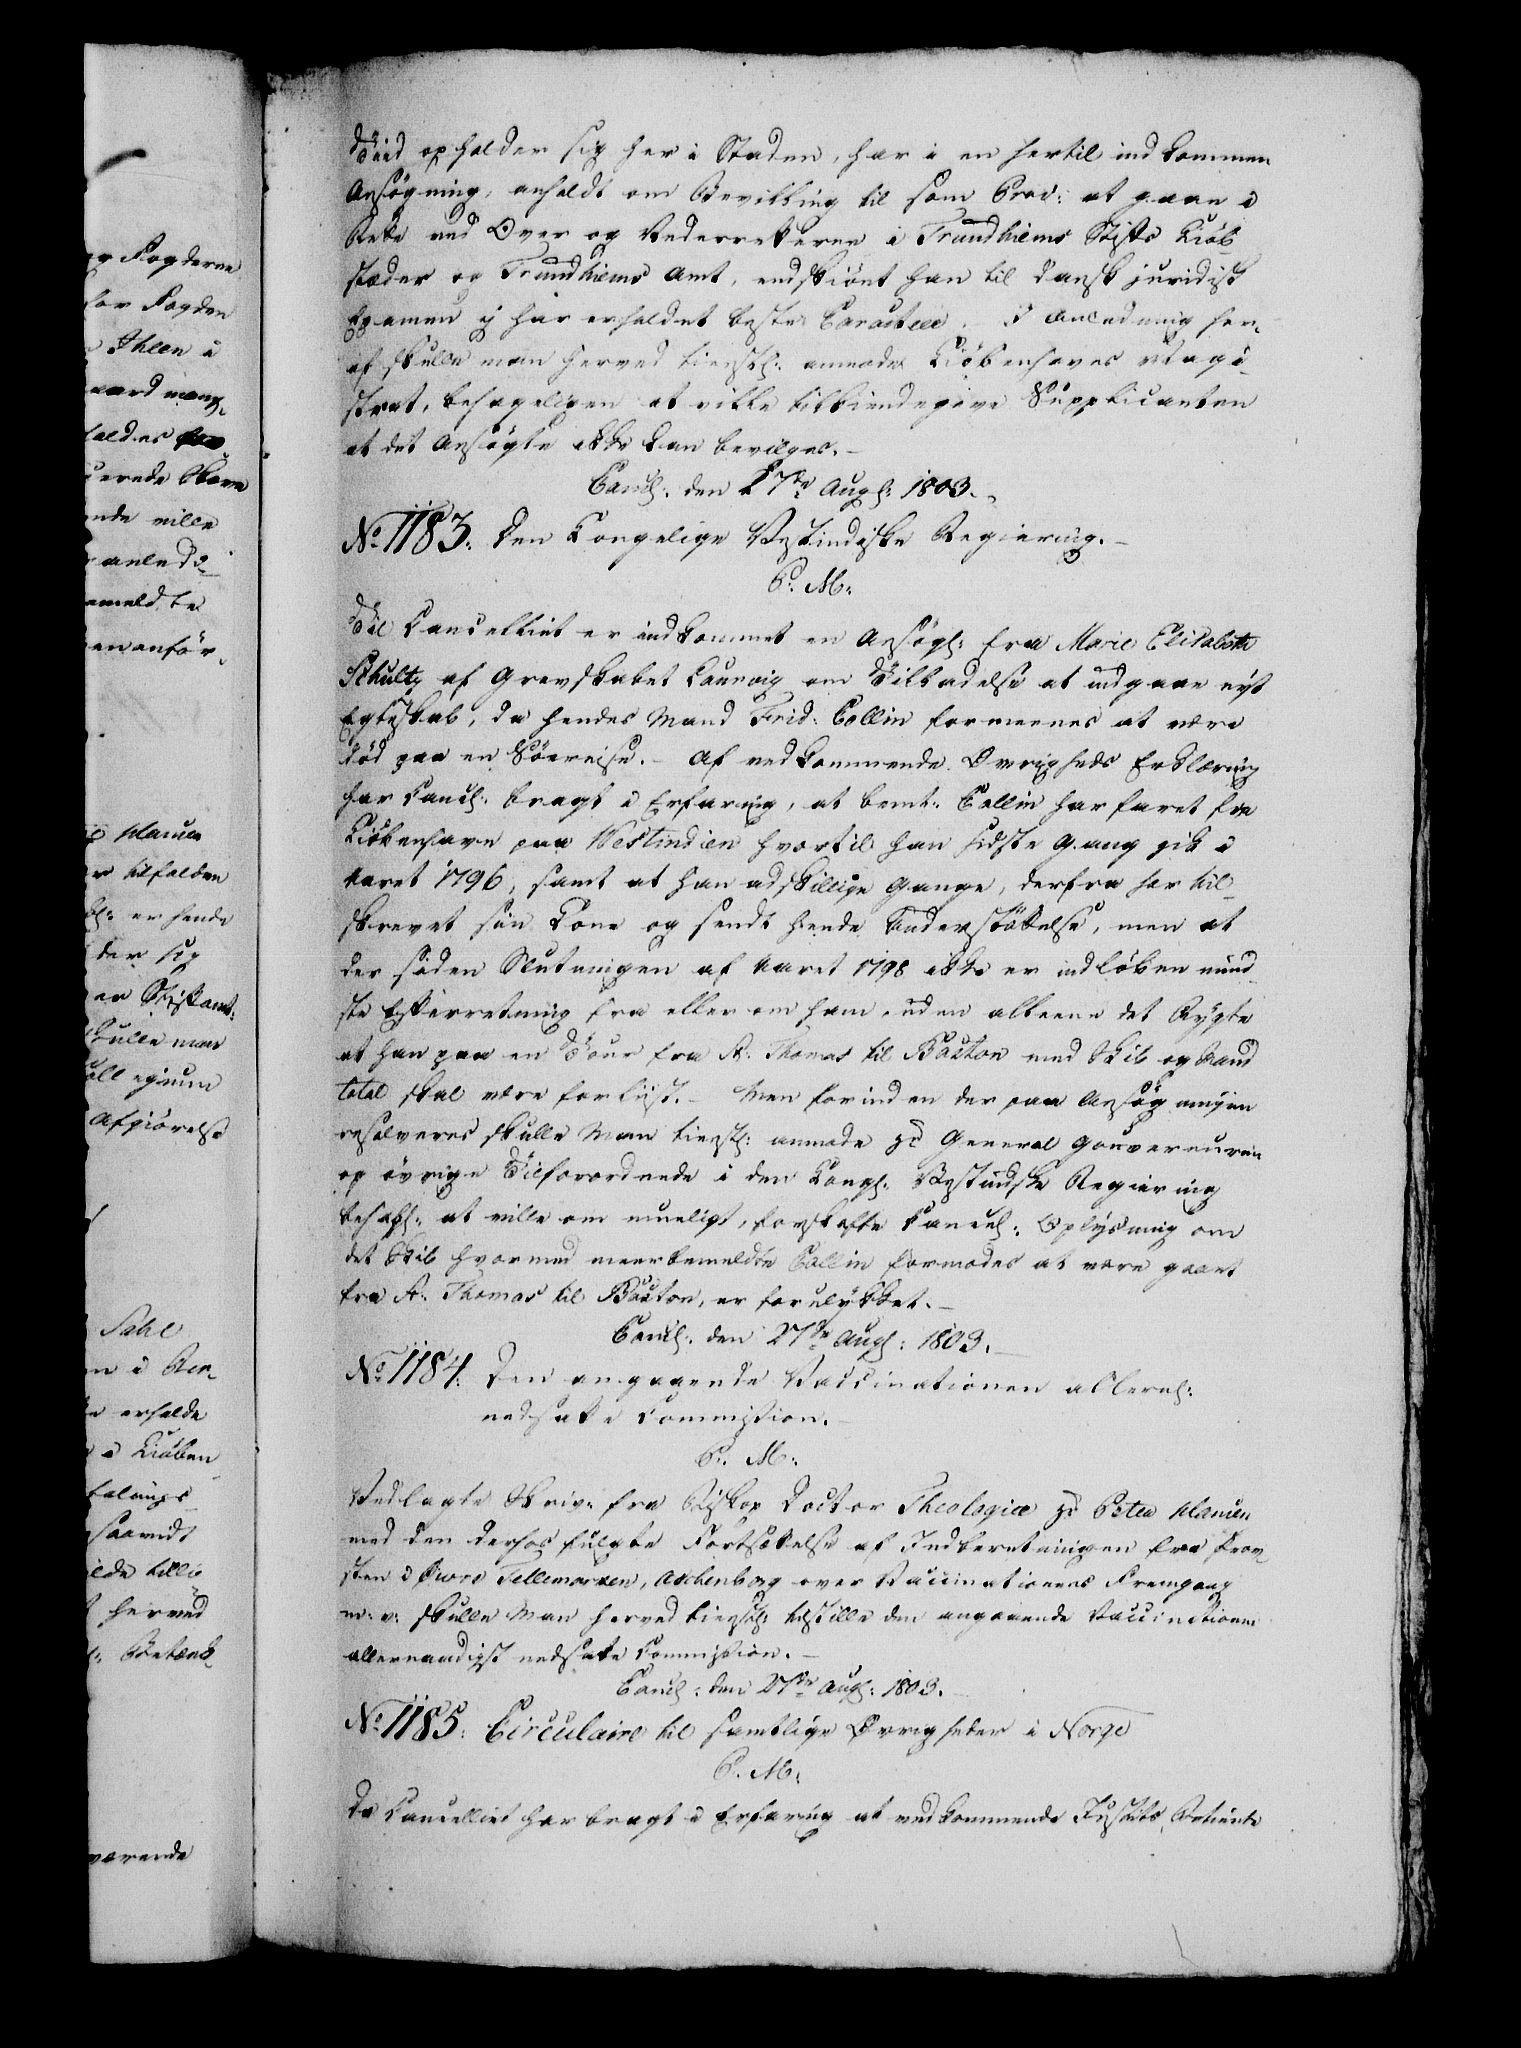 er Fogderne
for Fogden
Ihlen i
gaard mang-
faldes
erede Skove
ende ville
anledi-
emeldte
enanför-
Hansen
tilfalden
er hende
der sig
er Stiftamt:
skulle man
Collegium
Afgiörelse
Sahl
en i Ber-
erholde
i Kiöben-
talings
saavidt
ilde tillie
herved
Betænk-
værende
Tiid opholder sig her i Staden, har i en hertil indkommen
Ansögning, anholdt om Bevilling til som Proc: at gaae i
Rette ved Over og Underretterne i Trundhiems Stifts Kiöb-
stæder og Trundhiems Amt, endskiönt han til dansk juridisk
Examen ej har erholdet beste Caracteer. I Anledning her-
af skulle man herved tienstl: anmode Kiöbenhavns Magi-
strat, behageligen at ville tilkiendegive Supplicanten
at det Ansögte ikke kan bevilges.-
Cancl: den 27de Augl: 1803.
No. 1183. Den Kongelige Vestindiske Regiering.-
P. M:
Til Cancelliet er indkommet en Ansögl: fra Marie Elisabeth
Schultz af Grevskabet Laurvig om Tilladelse at indgaae nyt
Egteskab, da hendes Mand Frid: Collin formeenes at være
död paa en Söereise.- Af vedkommende Övrigheds Erklæring
har Cancl: bragt i Erfaring, at bemt: Collin har faret fra
Kiöbenhavn paa Westindien hvortil han sidste Gang gik i
Aaret 1796, samt at han adskillige Gange, derfra har til-
skrevet sin Kone og sendt hende Understöttelse, men at
der siden Slutningen af Aaret 1798 ikke er indlöben mind-
ste Efterretning fra eller om ham, uden alleene det Rygte
at han paa en Tour fra St: Thomas til Boston med Skib og Mand
total skal være forliist.- Men forinden der paa Ansögningen
resolveres skulle Man tienstl: anmode Hr General Gouverneuren
og övrige Tilforordnede i den Kongl: Vestindiske Regiering
behagl: at ville om mueligt, forskaffe Cancel: Oplysning om
det Skib hvormed meerbemeldte Collin formodes at være gaaet
fra St: Thomas til Boston, er forulykket.-
Cancl: den 27de Augl: 1803.
No. 1184. Den angaaende Vaccinationen allernl:
nedsatte Commission.-
P. M:
Vedlagte Skriv: fra Biskop Doctor Theologiæ Hr Peter Hansen
med den derhos fulgte Fortsættelse af Indberetningen fra Prov-
sten i Övre Tellemarken, Aschenberg over Vaccinationens Fremgang
m: v: skulle Man herved tienstl: tilstille den angaaende Vaccinationen
allernaadigst nedsatte Commission.-
Cancl: den 27de Augl: 1803.
No. 1185. Circulaire til samtlige Övrigheder i Norge
P. M:
Da Cancelliet har bragt i Erfaring at vedkommende Justits Betiente